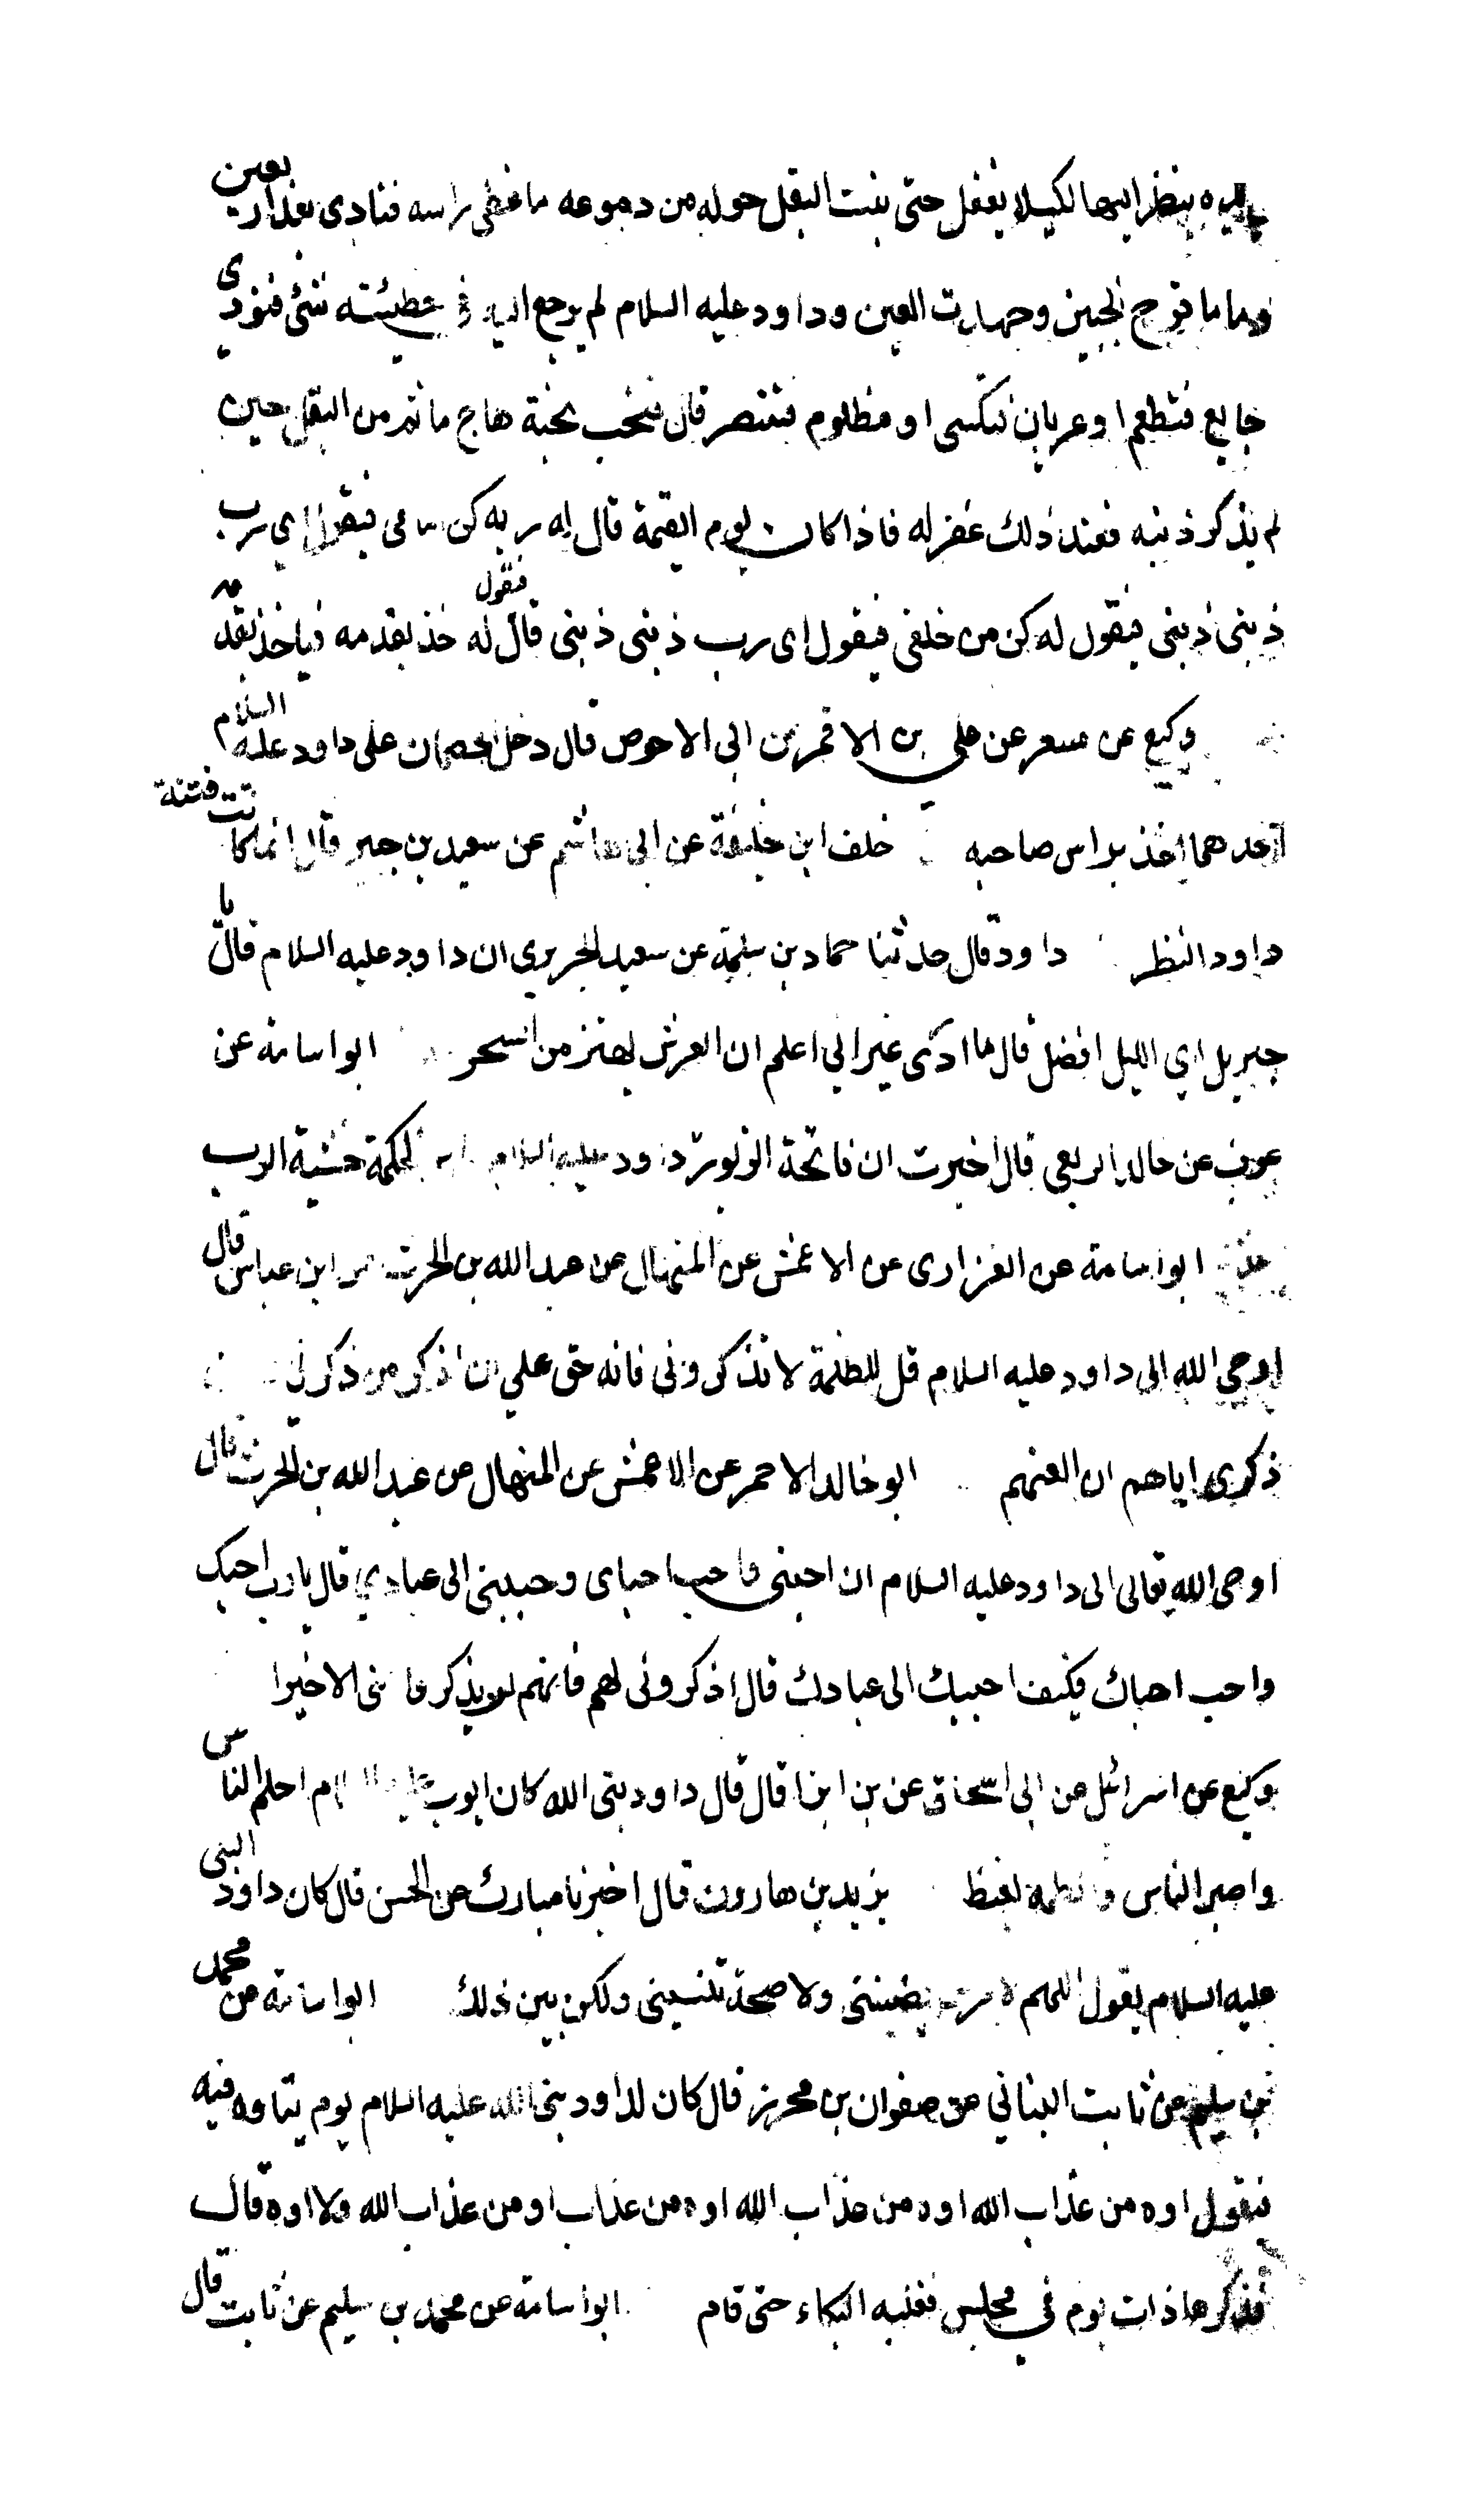 يده ينظر اليها لكيلا يغفل حتى نبت البقل حوله من دموعه ما غطى راسه فنادى بعد اربعين
يوما ما قرح الجبين وجمدت العين وداود عليه السلام لم يرجع اليه في خطيئته شئ فنودي
جايع فتطعم او عريان فتكسى او مظلوم فتنتصر قال فنحب نحبة هاج ما ثم من البقل حين
لم يذكر ذنبه فعند ذلك غفر له فاذا كان يوم القيمة قال له ربه كن امامي فيقول اي رب
ذنبي ذنبي فيقول له كن من خلفي فيقول اى رب ذنبى ذنبى قال له فيقول خذ بقدمه فياخذ بقدمه
وكيع عن مسعر عن علي بن الاقمر عن ابى الاحوص قال دخل الخصمان على داود عليه السلام
احدهما اخذ براس صاحبه خلف ابن خليفة عن ابى هاشم عن سعيد بن جبير قال انما كانت فتنة
داود النظر داود قال حدثنا حماد بن سلمة عن سعيد الجريري ان داود عليه السلام قال يا
جبريل اي الليل افضل قال ما ادرى غير اني اعلم ان العرش يهتز من السحر ابو اسامة عن
عوف عن خالد الربعى قال اخبرت ان فاتحة الزبور داود عليه السلام الحكمة خشية الرب
ابو اسامة عن الفزارى عن الاعمش عن المنهال عن عبد الله بن الحرث عن ابن عباس قال
اوحى الله الى داود عليه السلام قل للظلمة لا تذكرونى فانه حق علي ان اذكر من ذكرني
ذكرى اياهم ان العنهم ابو خالد الاحمر عن الاعمش عن المنهال عن عبد الله بن الحرث قال
اوحى الله تعالى الى داود عليه السلام ان احبنى واحب احباى وحببنى الى عبادي قال يا رب احبك
واحب احباك فكيف احببك الى عبادك قال اذكرونى لهم فانهم لن يذكروا منى الا خيرا
وكيع عن اسرائل عن ابى اسحاق عن بن ابزا قال قال داود نبى الله كان ايوب عليه السلام احلم الناس
واصبر الناس لغيظ يزيد بن هارون قال اخبرنا مبارك عن الحسن قال كان داود النبى
عليه السلام يقول اللهم لا مرض يضنينى ولا صحة تنسينى ولكن بين ذلك ابو اسامة عن محمد
بن سليم عن ثابت البناني عن صفوان بن محرز قال كان لداود نبى الله عليه السلام يوم يتاوه فيه
فيقول اوه من عذاب الله اوه من عذاب الله اوه من عذاب اومن عذاب الله ولا اوه قال
فذكرها ذات يوم في مجلس فغلبه البكاء حتى قام ابو اسامة عن محمد بن سليم عن ثابت قال